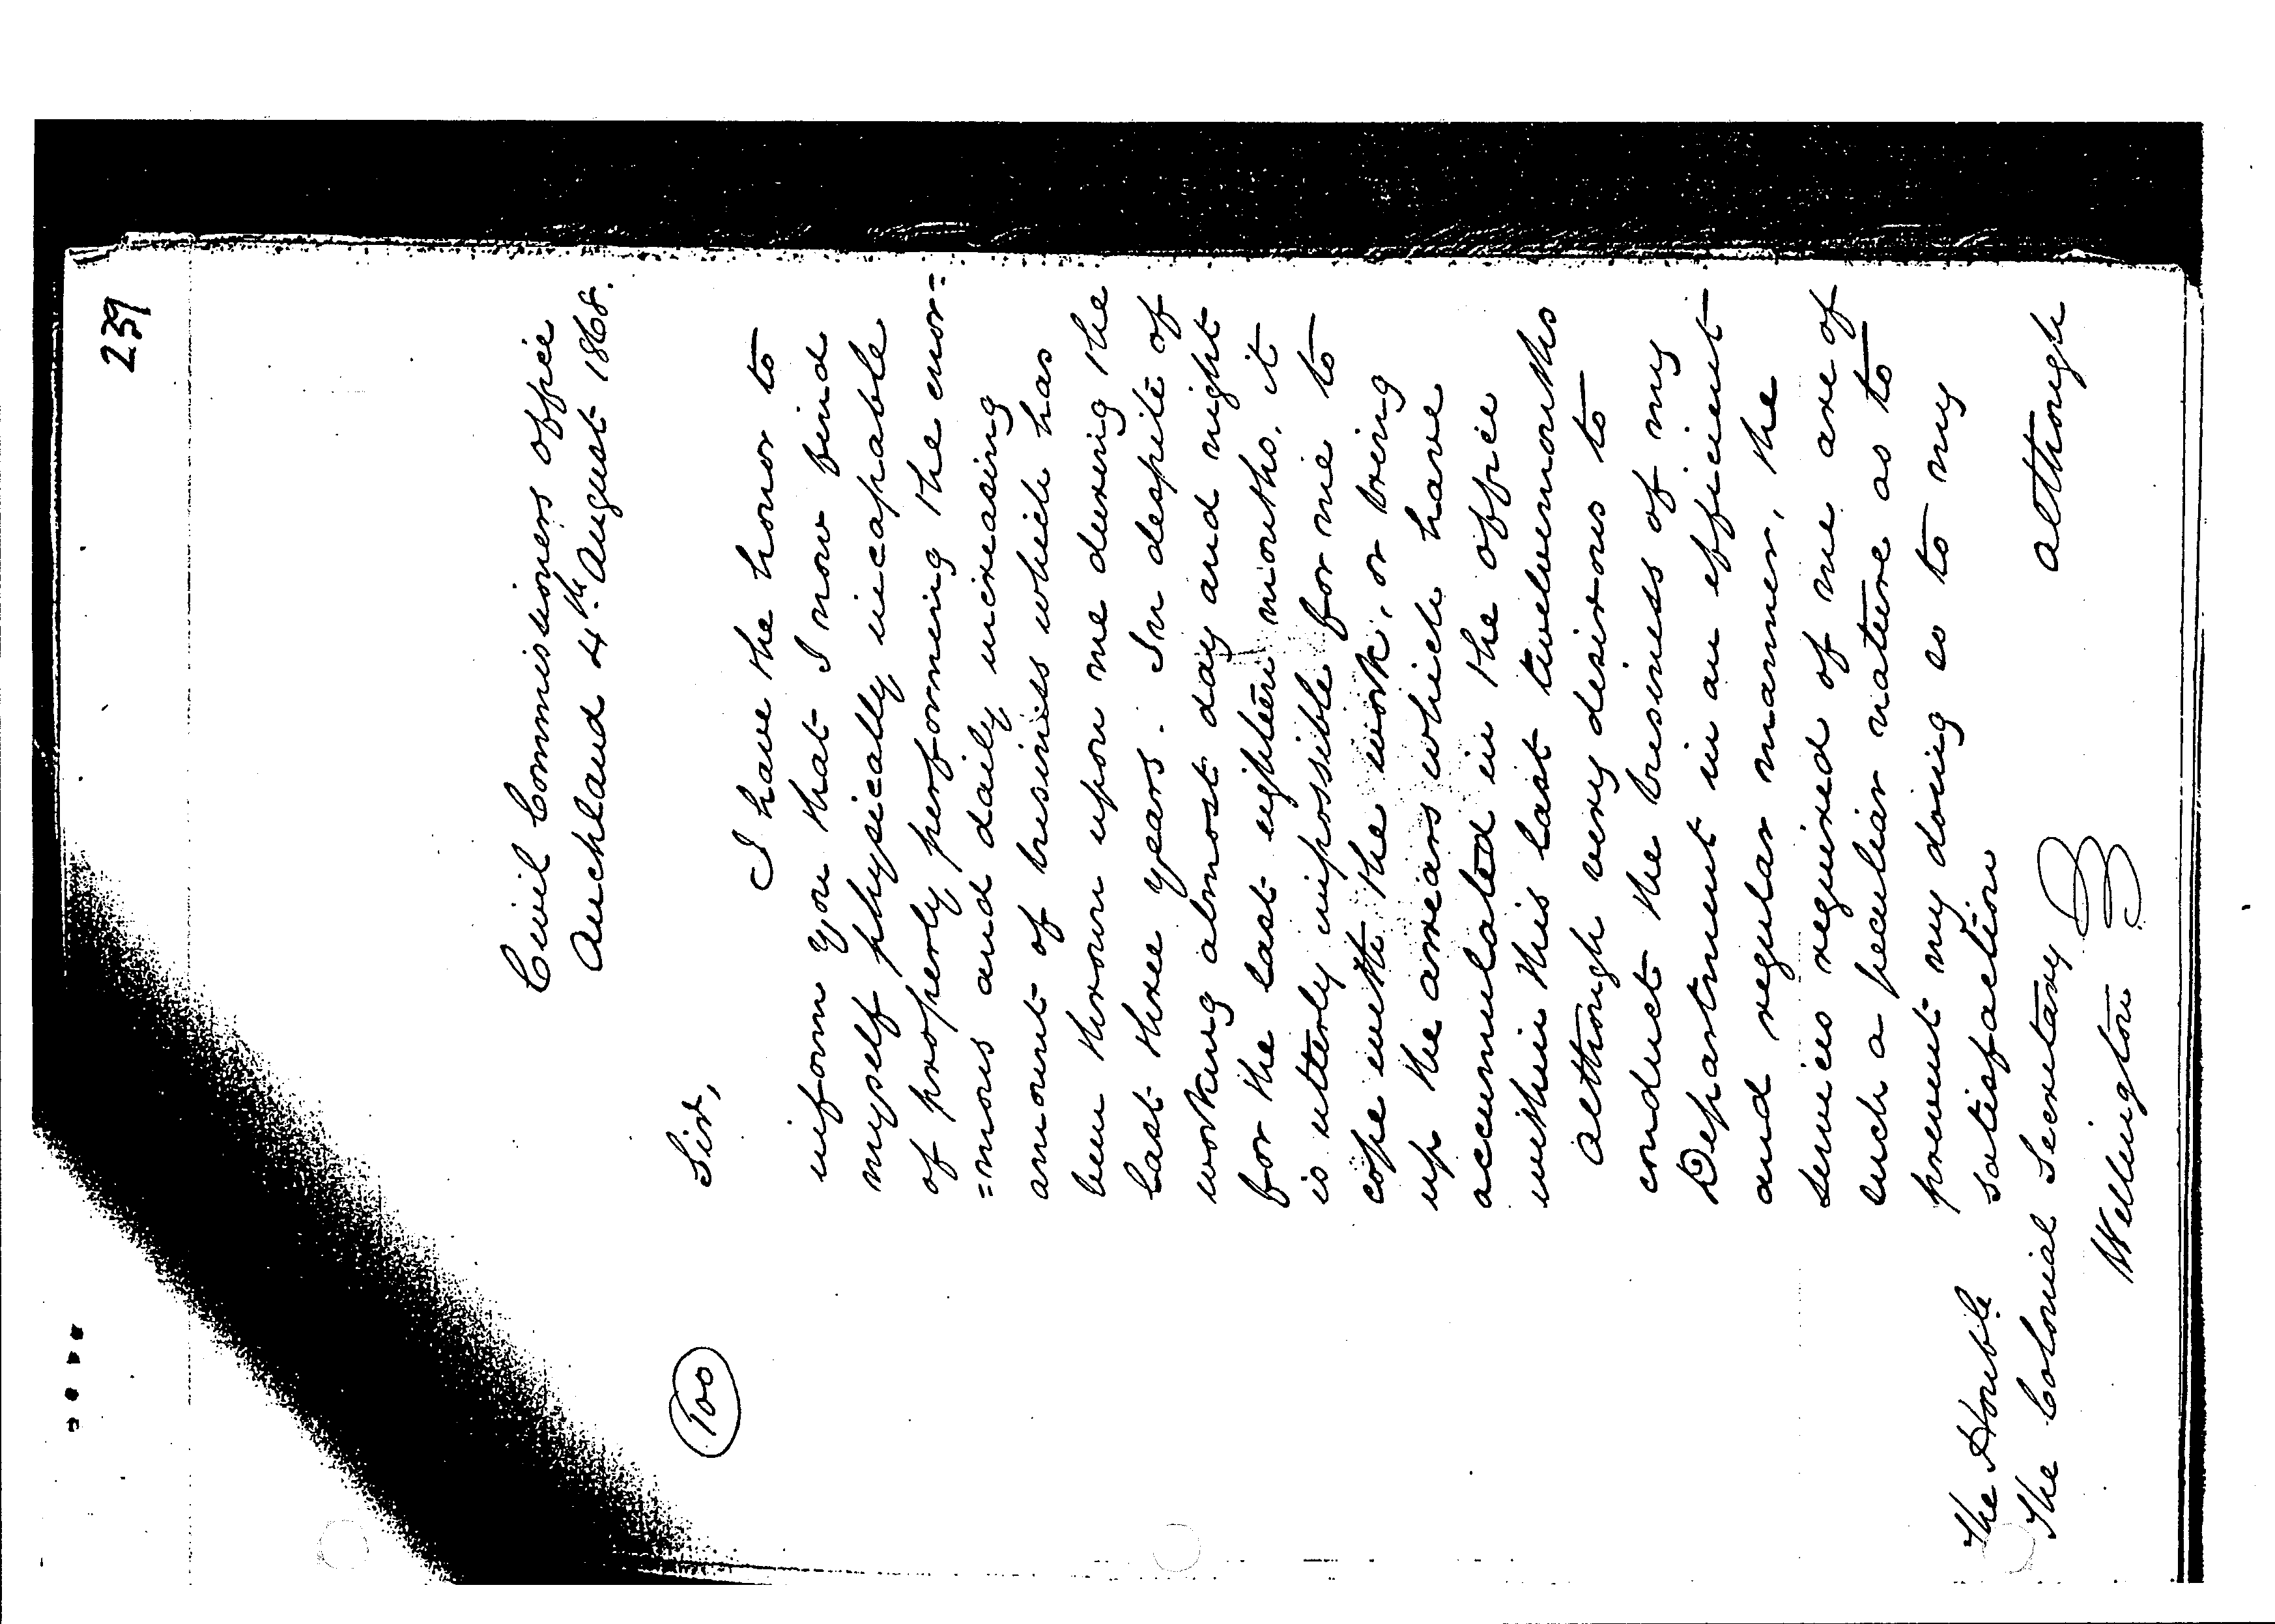 239
Civil Commissioners Office
Auckland 4th August 1868.
Sir,
100
I have the honor to
inform you that I now find
myself physically incapable
of properly performing the enor=
=mous and daily increasing
amount of business which has
been thrown upon me during the
last three years. In despite of
working almost day and night
for the last eighteen months, it
is utterly impossible for me to
cope with the work, or bring
up the arrears which have
accumulated in the office
within this last twelvemonths
Although very desirous to
conduct the business of my
Department in an efficient
and regular manner, the
services required of me are of
such a peculiar nature as to
prevent my doing so to my
satisfaction
although
The Honble
The Colonial Secretary
Wellington